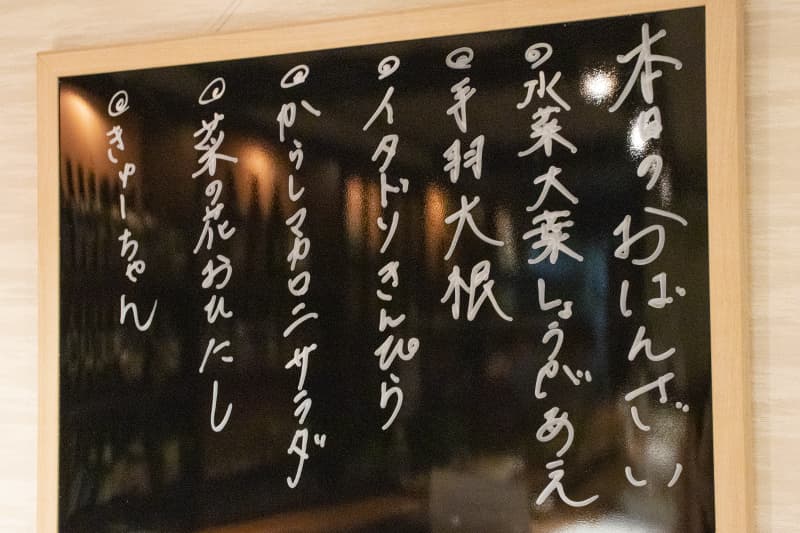 本日のおばんざい
◎水菜大葉しょうがあえ
◎手羽大根
◎イタドリきんぴら
◎からしマカロニサラダ
◎菜の花おひたし
◎きゅーちゃん